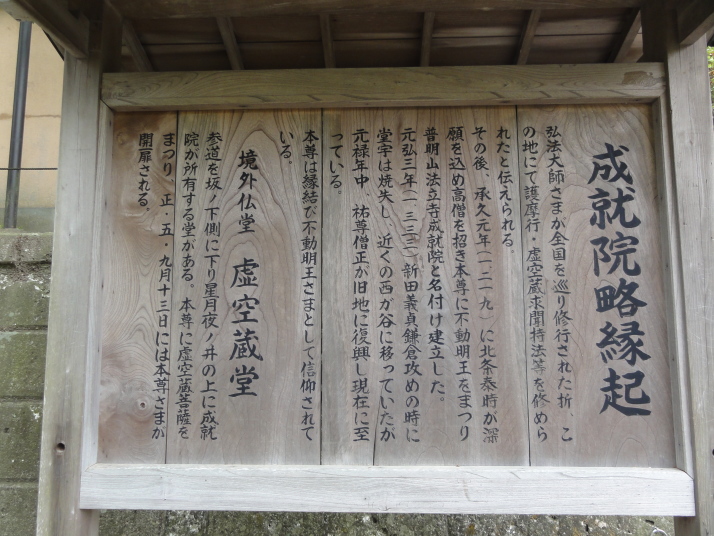 成就院略縁起
弘法大師さまが全国を巡り修行された折、こ
の地にて護摩行・虚空蔵求聞持法等を修めら
れたと伝えられる。
その後、承久元年(一二一九)に北条泰時が深
願を込め高僧を招き本尊に不動明王をまつり
普明山法立寺成就院と名付け建立した。
元弘三年(一三三三)新田義貞鎌倉攻めの時に
堂宇は焼失し、近くの西が谷に移っていたが
元禄年中、祐尊僧正が旧地に復興し現在に至
っている。
本尊は縁結び不動明王さまとして信仰されて
いる。
境外仏堂 虚空蔵堂
参道を坂ノ下側に下り星月夜ノ井の上に成就
院が所有する堂がある。本尊に虚空蔵菩薩を
まつり、正・五・九月十三日には本尊さまが
開扉される。